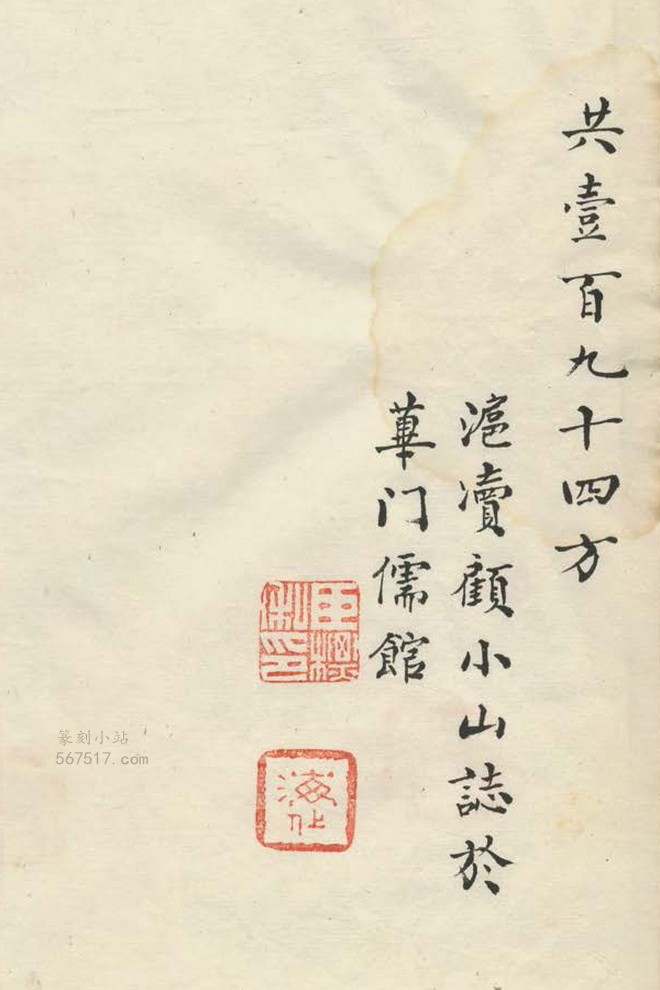 共壹百九十四方
滬瀆顧小山誌於
蓽门儒館
篆刻小站
567517.com